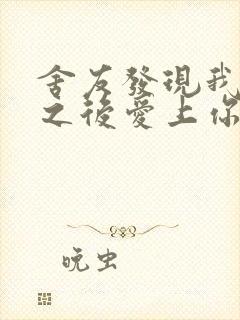 舍友發現我
之後愛上你
晚虫